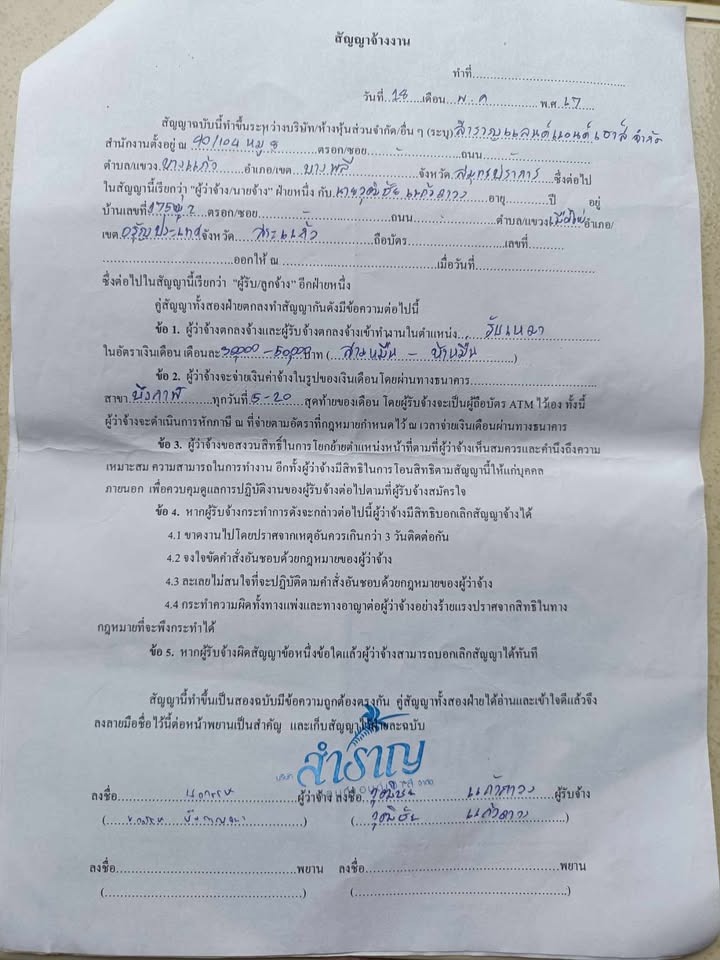 สัญญาจ้างงาน
ทำที่..................................................
วันที่..18....เดือน..พ.ค..............พ.ศ..67.....
สัญญาฉบับนี้ทำขึ้นระหว่างบริษัท/ห้างหุ้นส่วนจำกัด/อื่น ๆ (ระบุ)..สำราญแลนด์แอนด์เฮาส์ จำกัด
สำนักงานตั้งอยู่ ณ 90/104 หมู่ 8 ............ตรอก/ซอย..............................ถนน..............................
ตำบล/แขวง..บางแก้ว........อำเภอ/เขต...บางพลี..............จังหวัด..สมุทรปราการ......ซึ่งต่อไป
ในสัญญานี้เรียกว่า "ผู้ว่าจ้าง/นายจ้าง" ฝ่ายหนึ่ง กับ..นายวุฒิชัย แก้วถาวร......อายุ...........ปี อยู่
บ้านเลขที่ 175 ........ตรอก/ซอย..............................ถนน....................ตำบล/แขวง........อำเภอ/
เขต..อรัญประเทศ จังหวัด....สระแก้ว...........ถือบัตร..............................เลขที่....................
..............................ออกให้ ณ ..............................เมื่อวันที่..............................
ซึ่งต่อไปในสัญญานี้เรียกว่า "ผู้รับ/ลูกจ้าง" อีกฝ่ายหนึ่ง
คู่สัญญาทั้งสองฝ่ายตกลงทำสัญญากันดังมีข้อความต่อไปนี้
ข้อ 1. ผู้ว่าจ้างตกลงจ้างและผู้รับจ้างตกลงจ้างเข้าทำงานในตำแหน่ง........รับเหมา............
ในอัตราเงินเดือน เดือนละ 30,000 - 50,000 บาท (...สามหมื่น - ห้าหมื่น..........)
ข้อ 2. ผู้ว่าจ้างจะจ่ายเงินค่าจ้างในรูปของเงินเดือนโดยผ่านทางธนาคาร..............................
สาขา.บึงกาฬ.........ทุกวันที่.5-20.....สุดท้ายของเดือน โดยผู้รับจ้างจะเป็นผู้ถือบัตร ATM ไว้เอง ทั้งนี้
ผู้ว่าจ้างจะดำเนินการหักภาษี ณ ที่จ่ายตามอัตราที่กฎหมายกำหนดไว้ ณ เวลาจ่ายเงินเดือนผ่านทางธนาคาร
ข้อ 3. ผู้ว่าจ้างขอสงวนสิทธิ์ในการ โยกย้ายตำแหน่งหน้าที่ตามที่ผู้ว่าจ้างเห็นสมควรและคำนึงถึงความ
เหมาะสม ความสามารถในการทำงาน อีกทั้งผู้ว่าจ้างมีสิทธิในการโอนสิทธิตามสัญญานี้ให้แก่บุคคล
ภายนอก เพื่อควบคุมดูแลการปฏิบัติงานของผู้รับจ้างต่อไปตามที่ผู้รับจ้างสมัครใจ
ข้อ 4. หากผู้รับจ้างกระทำการดังจะกล่าวต่อไปนี้ผู้ว่าจ้างมีสิทธิบอกเลิกสัญญาจ้างได้
4.1 ขาดงานไปโดยปราศจากเหตุอันควรเกินกว่า 3 วันติดต่อกัน
4.2 จงใจขัดคำสั่งอันชอบด้วยกฎหมายของผู้ว่าจ้าง
4.3 ละเลยไม่สนใจที่จะปฏิบัติตามคำสั่งอันชอบด้วยกฎหมายของผู้ว่าจ้าง
4.4 กระทำความผิดทั้งทางแพ่งและทางอาญาต่อผู้ว่าจ้างอย่างร้ายแรงปราศจากสิทธิในทาง
กฎหมายที่จะพึงกระทำได้
ข้อ 5. หากผู้รับจ้างผิดสัญญาข้อหนึ่งข้อใดแล้วผู้ว่าจ้างสามารถบอกเลิกสัญญาได้ทันที
สัญญานี้ทำขึ้นเป็นสองฉบับมีข้อความถูกต้องตรงกัน คู่สัญญาทั้งสองฝ่ายได้อ่านและเข้าใจดีแล้วจึง
ลงลายมือชื่อไว้นี้ต่อหน้าพยานเป็นสำคัญ และเก็บสัญญาไว้ฝ่ายละฉบับ
บริษัท สำราญ
ลงชื่อ..............................ผู้ว่าจ้าง ลงชื่อ..วุฒิชัย แก้วถาวร....ผู้รับจ้าง
(..............................) (..วุฒิชัย แก้วถาวร......)
ลงชื่อ..............................พยาน ลงชื่อ..............................พยาน
(..............................) (..............................)